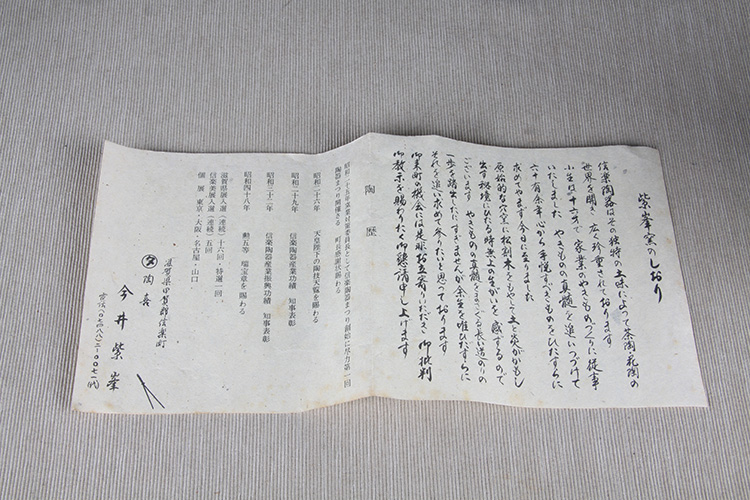 紫峯窯のしおり
信楽陶器はその独特の土味によって茶陶、花陶の
世界を開き 広く珍重されております
小生は十六才で 家業のやきものづくりに従事
いたしました やきものの真髄を追いつづけて
六十有余年 心から幸悦すべきものをひたすらに
求めつづけます 今日に至りました
原始的な穴窯に松割木をもやして土と炎がかもし
出す秘境にひたる時 無上の生がいを感ずるので
ございます やきものの真髄をまさぐる長い道のりの
一歩を踏出したにすぎませんが余生を唯ひたすらに
それを追い求めて参りたいと思っております
御来町の機会には是非お立寄りいただき 御批判
御教示を賜わりたく御懇請申し上げます
陶歴
昭和二十五年 業対委員長として信楽陶器まつり創始に尽力 第一回
陶器まつり開催さる 町長感謝状賜わる
昭和二十六年 天皇陛下の陶技天覧を賜わる
昭和二十九年 信楽陶器産業功績 知事表彰
昭和三十二年 信楽陶器産業振興功績 知事表彰
昭和四十八年 勲五等 瑞宝章を賜わる
滋賀県展入選(連続)十六回、特選一回、
信楽美展入選(連続)五回
個展、東京・大阪・名古屋・山口、
滋賀県甲賀郡信楽町
陶吾
今井紫峯
電話(〇七四八八)二-〇〇七一(代)